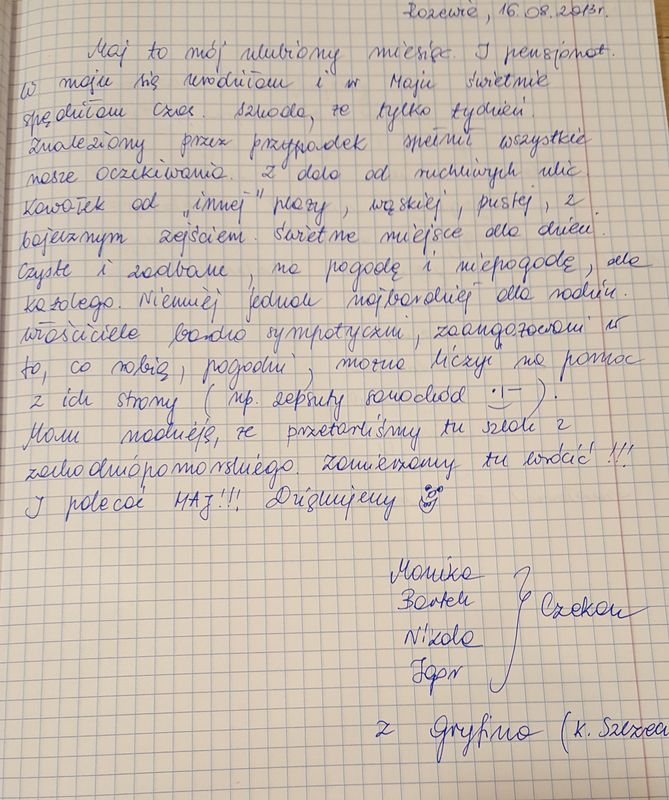 Rozewie, 16.08.2013r.
Maj to mój ulubiony miesiąc. I pensjonat.
W maju się urodziłam i w Maju świetnie
spędziłam czas. Szkoda, że tylko tydzień.
Znaleziony przez przypadek spełnił wszystkie
nasze oczekiwania. Z dala od ruchliwych ulic.
Kawałek od „innej" plaży, wąskiej, pustej, z
bajecznym zejściem. Świetne miejsce dla dzieci.
Czyste i zadbane, na pogodę i niepogodę, dla
każdego. Niemniej jednak najbardziej dla rodzin.
Właściciele bardzo sympatyczni, zaangażowani w
to, co robią, pogodni, można liczyć na pomoc
z ich strony (np. zepsuty samochód).
Mam nadzieję, że przetarliśmy tu szlak z
zachodniopomorskiego. Zamierzamy tu wrócić!!!
I polecać MAJ!!! Dziękujemy
Monika
Bartek
Nikola
Igor
z Gryfina (k.